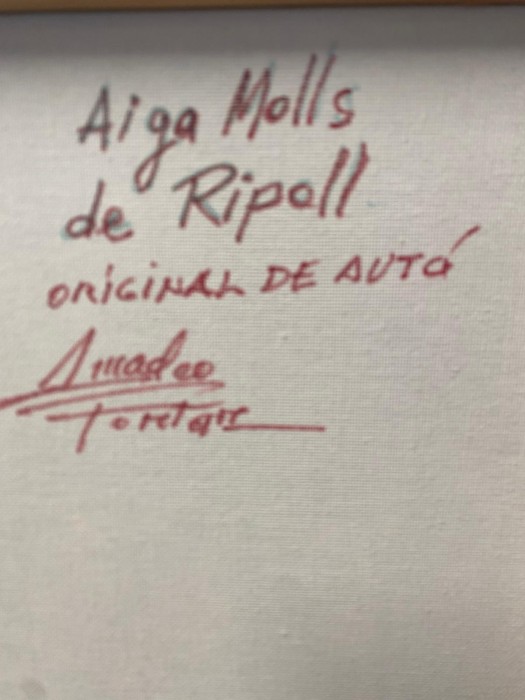 Aiga Molls
de Ripoll
ORIGINAL DE AUTÓ
Amadeo